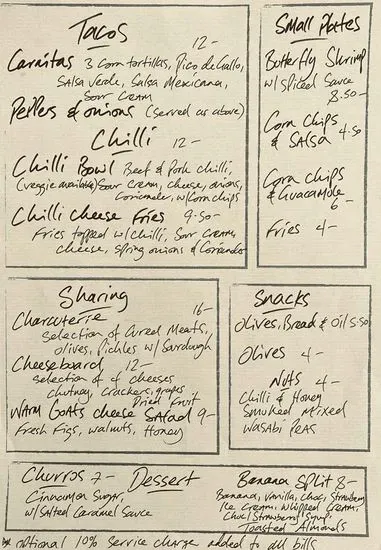 Tacos
12-
Carnitas 3 corn tortillas, Pico de Gallo,
Salsa verde, Salsa Mexicana,
Sour Cream
Peppers & onions (served as above)
Chilli
12-
Chilli Bowl Beef & Pork chilli,
(veggie available) Sour Cream, Cheese, onions,
Coriander, w/Corn chips
Chilli Cheese Fries 9.50-
Fries topped w/chilli, Sour Cream,
Cheese, Spring onions & Coriander
Small Plates
Butterfly Shrimp
w/ Spiced Sauce
8.50-
Corn Chips
& Salsa 4.50
Corn Chips
& Guacamole
6-
Fries 4-
Sharing
16-
Charcuterie
Selection of Cured Meats,
Olives, Pickles w/ Sourdough
Cheeseboard 12-
Selection of 4 cheeses
Chutney, Crackers, grapes
Dried Fruit
Warm Goats cheese Salad 9-
Fresh Figs, walnuts, Honey
Snacks
Olives, Bread & Oil 5.50
Olives 4-
Nuts 4-
Chilli & Honey
Smoked Mixed
Wasabi Peas
Churros 7- Dessert
Cinnamon Sugar,
w/Salted Caramel Sauce
Banana Split 8-
Banana, Vanilla, Choc, Strawberry
Ice Cream, Whipped Cream,
Choc/Strawberry Syrup
Toasted Almonds
* optional 10% service charge added to all bills